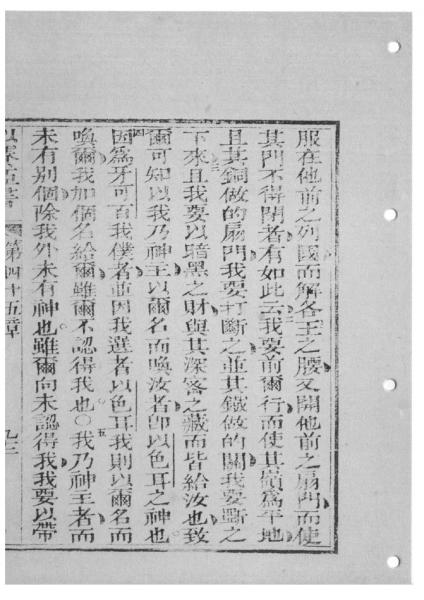 服在他前之列國而解各王之腰又開他前之扇門而使
其門不得閉者有如此云二我要前爾行而使其嶺為平地
且其銅做的扇門我要打斷之並其鐵做的關我要斷之
下來三且我要以暗黑之財與其深密之藏而皆給汝也致
爾可知以我乃神主以爾名而喚汝者即以色耳之神也
四因為牙可百我僕者並因我選者以色耳我則以爾名而
喚爾我加個名給爾雖爾不認得我也○五我乃神主者而
未有別個除我外未有神也雖爾向未認得我我要以帶
第四十五章